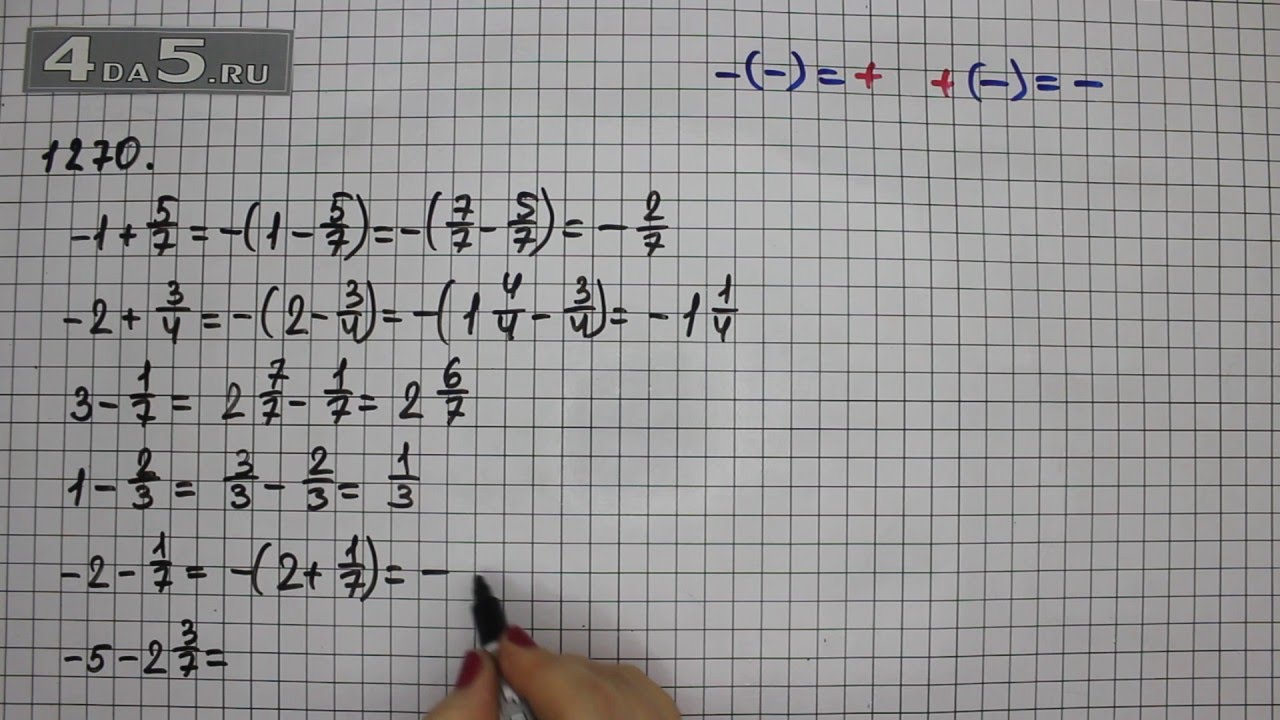 4DA5.RU
-(-) = +   +(-) = -
1270.
-1 + 5/7 = -(1 - 5/7) = -(7/7 - 5/7) = - 2/7
-2 + 3/4 = -(2 - 3/4) = -(1 4/4 - 3/4) = -1 1/4
3 - 1/7 = 2 7/7 - 1/7 = 2 6/7
1 - 2/3 = 3/3 - 2/3 = 1/3
-2 - 1/7 = -(2 + 1/7) = -
-5 - 2 3/7 =